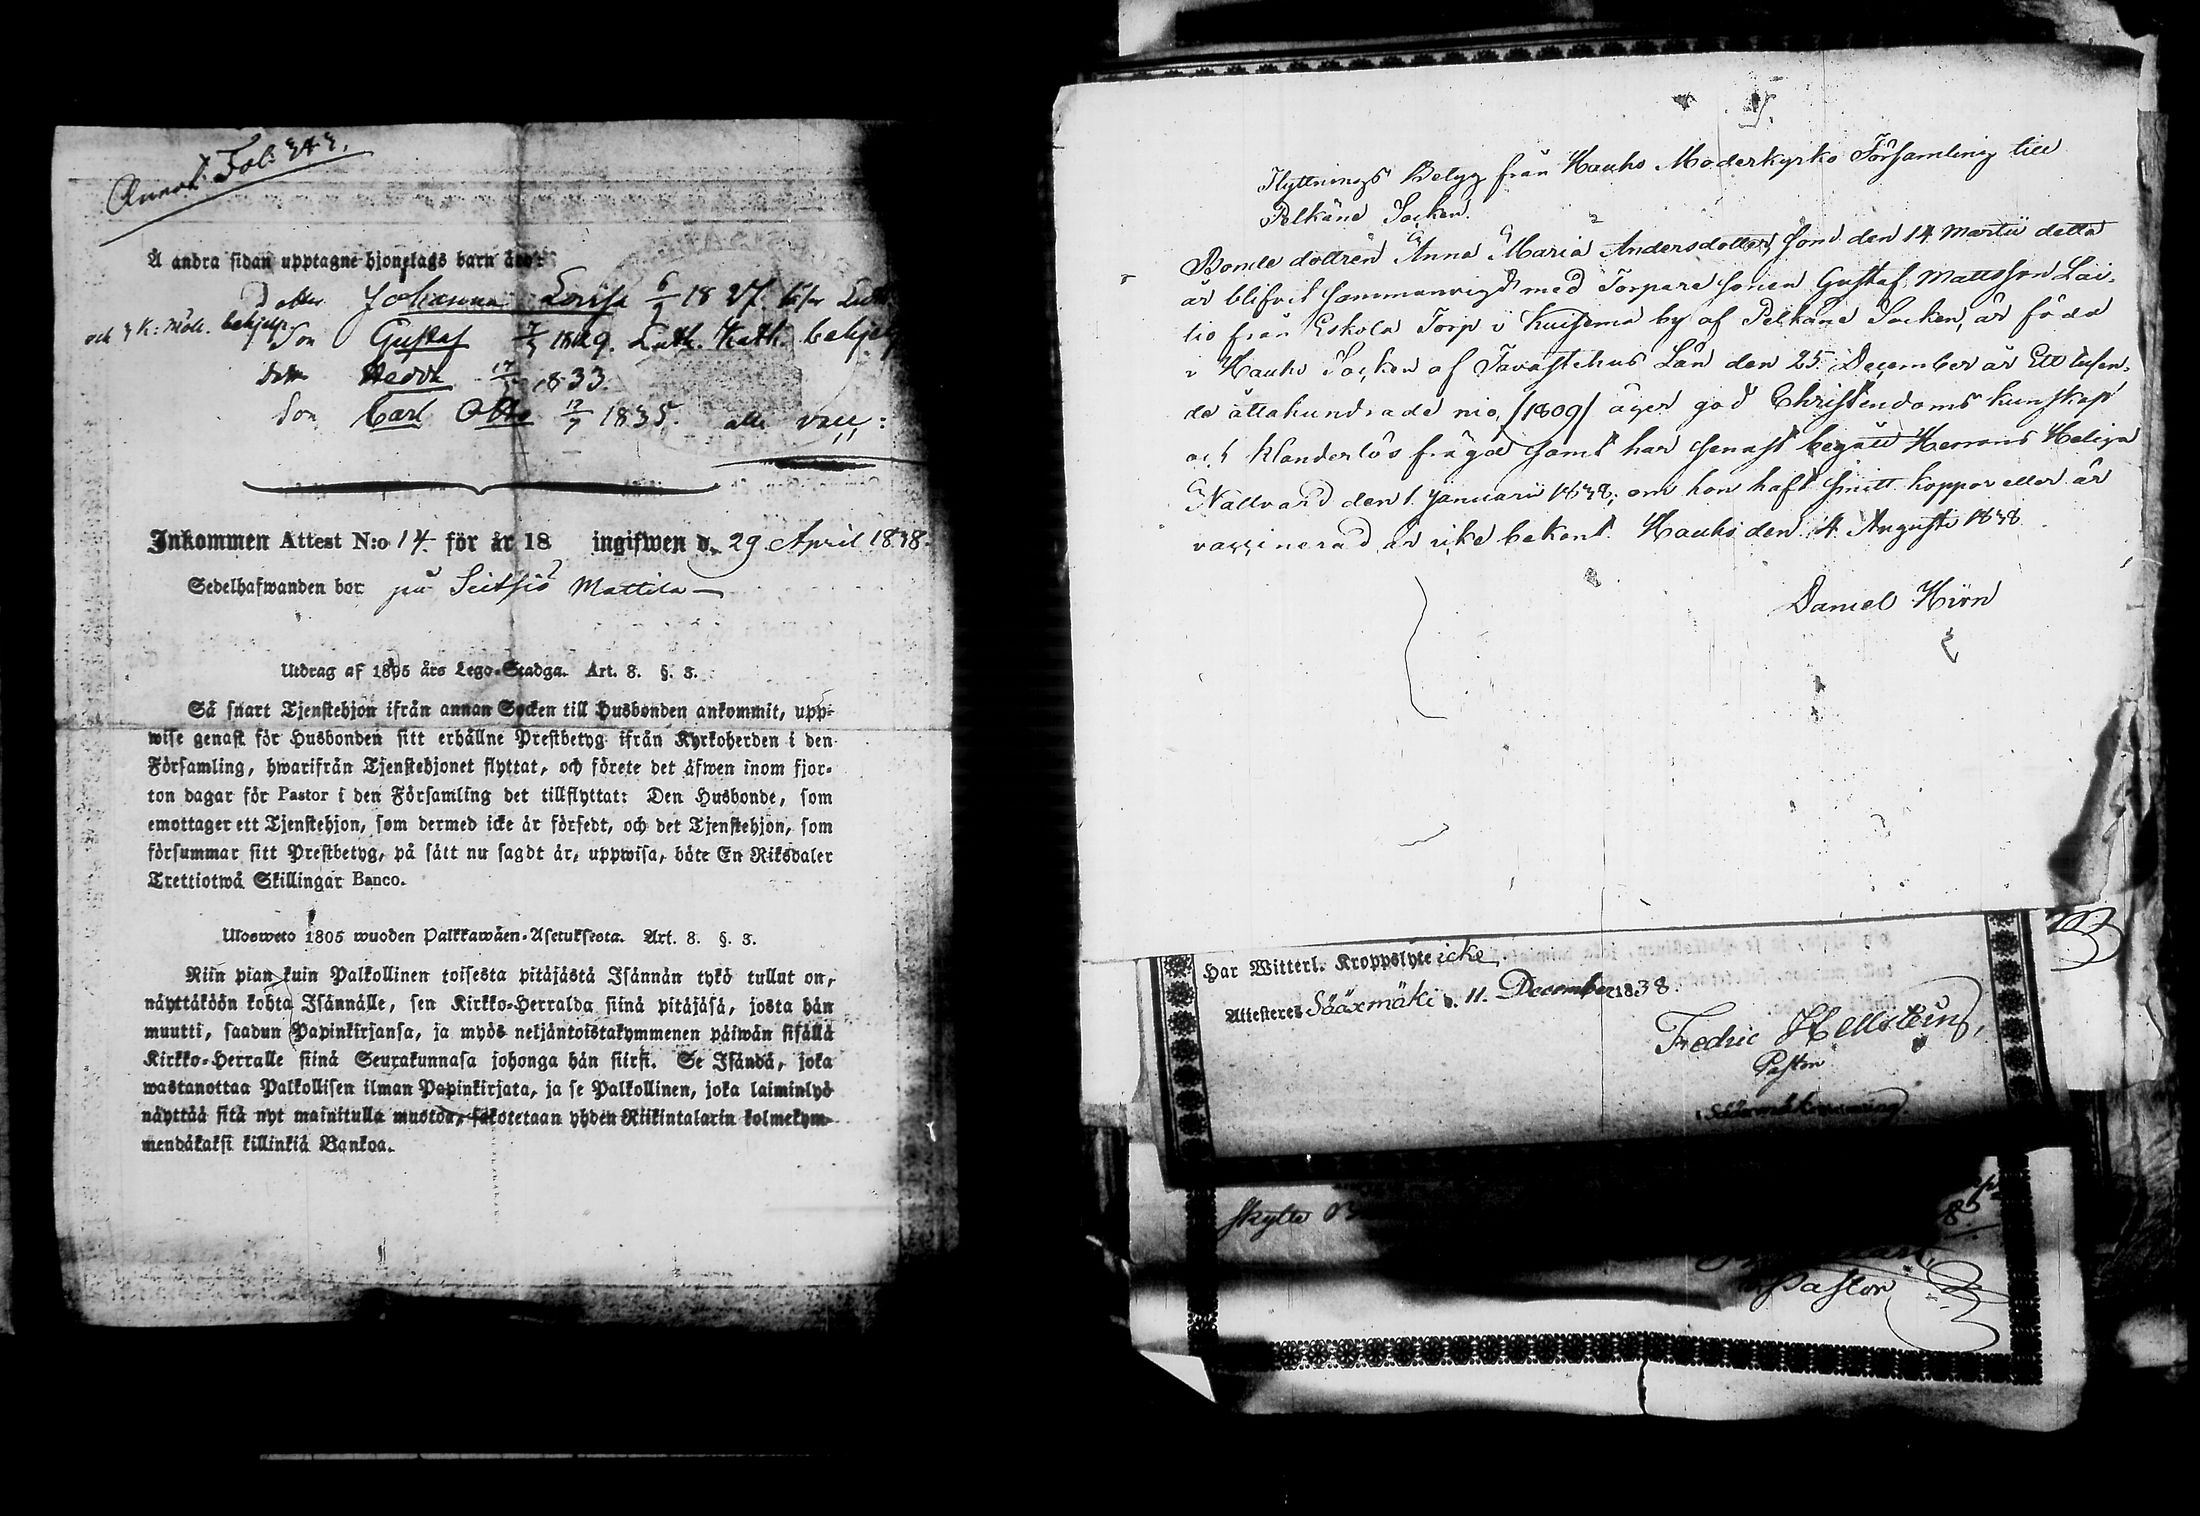 Annot. Fol: 343.
Å andra sidan upptagne hjonelags barn äro:
Dotter Johanna Lovisa 6/1 1827. läser Luth.
och h. K: Mått. behjelp.
Son Gustaf 7/5 1829. Luth. Kath. behjelp
Dott. Hedda 17/ 1833.
Son Carl Otto 12/7 1835. alla vacc:
Inkommen Attest N:o 14. för år 18 ingifwen d. 29 April 1838.
Sedelhafwanden bor på Seitsiö Mattila
Utdrag af 1805 års Lego-Stadga. Art. 8. §. 3.
Så snart Tjenstehjon ifrån annan Socken till Husbonden ankommit, upp-
wise genast för Husbonden sitt erhållne Prestbetyg ifrån Kyrkoherden i den
Församling, hwarifrån Tjenstehjonet flyttat, och förete det äfwen inom fjor-
ton dagar för Pastor i den Församling det tillflyttat: Den Husbonde, som
emottager ett Tjenstehjon, som dermed icke är försedt, och det Tjenstehjon, som
försummar sitt Prestbetyg, på sätt nu sagdt är, uppwisa, böte En Riksdaler
Trettiotwå Skillingar Banco.
Ulosweto 1805 wuoden Palkkawäen-Asetuksesta. Art. 8. §. 3.
Niin pian kuin Palkollinen toisesta pitäjästä Isännän tykö tullut on,
näyttäköön kohta Isännälle, sen Kirkko-Herralda siinä pitäjäsä, josta hän
muutti, saadun Papinkirjansa, ja myös neljäntoistakymmenen päiwän sisällä
Kirkko-Herralle siinä Seurakunnasa johonga hän siirsi. Se Isändä, joka
wastanottaa Palkollisen ilman Papinkirjata, ja se Palkollinen, joka laiminlyö
näyttää sitä nyt mainitulla muotoa, sakotetaan yhden Riikintalarin kolmekym-
mendäkaksi killinkiä Bankoa.
Flyttnings Betyg från Hauho Moderkyrko Församling till
Pelkäne Socken.
Bonde dottren Anna Maria Andersdotter, som den 14 Martii detta
år blifvit sammanvigd med Torpare sonen Gustaf Mattsson Lai-
tio från Eskola Torp i Kuisema by af Pelkäne Socken, är född
i Hauho Socken af Tavastehus Län den 25. December år Ett tusen-
de åttahundrade nio, /1809/ äger god Christendoms kunskap
och klanderlös frägd samt har senast begått Herrans Heliga
Nattvard den 1. Januarii 1838; om hon haft smitt koppor eller är
vaccinerad är icke bekant. Hauho den 4 Augusti 1838
Daniel Hirn
Har Witterl. Kroppslyte icke.
Attesteres Sääxmäki d. 11. December 1838.
Fredric Hellsteins,
Pastor
i Sääxmäki
skylte
Pastor